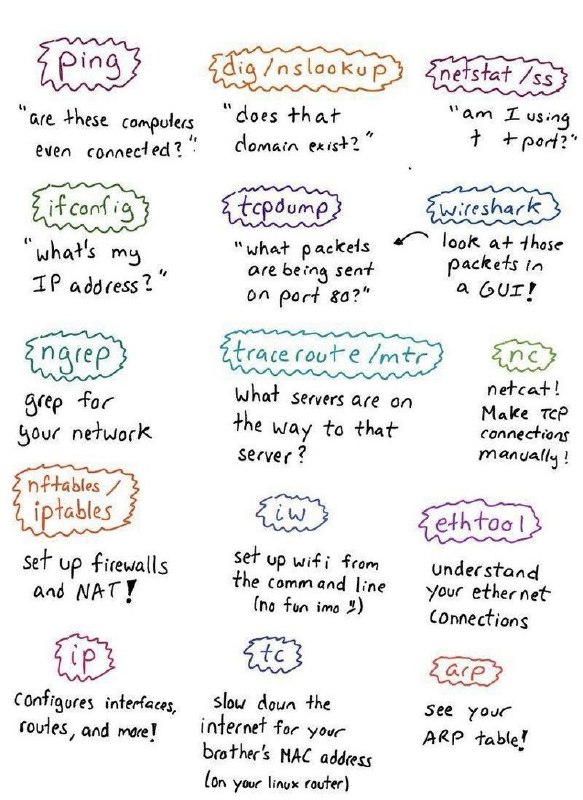 ping
"are these computers
even connected?"
dig/nslookup
"does that
domain exist?"
netstat/ss
"am I using
port?"
ifconfig
"what's my
IP address?"
tcpdump
"what packets
are being sent
on port 80?"
wireshark
look at those
packets in
a GUI!
ngrep
grep for
your network
traceroute/mtr
What servers are on
the way to that
server?
nc
netcat!
Make TCP
connections
manually!
nftables/
iptables
set up firewalls
and NAT!
iw
set up wifi from
the command line
(no fun imo !!)
ethtool
understand
your ethernet
connections
ip
configures interfaces,
routes, and more!
tc
slow down the
internet for your
brother's MAC address
(on your linux router)
arp
see your
ARP table!